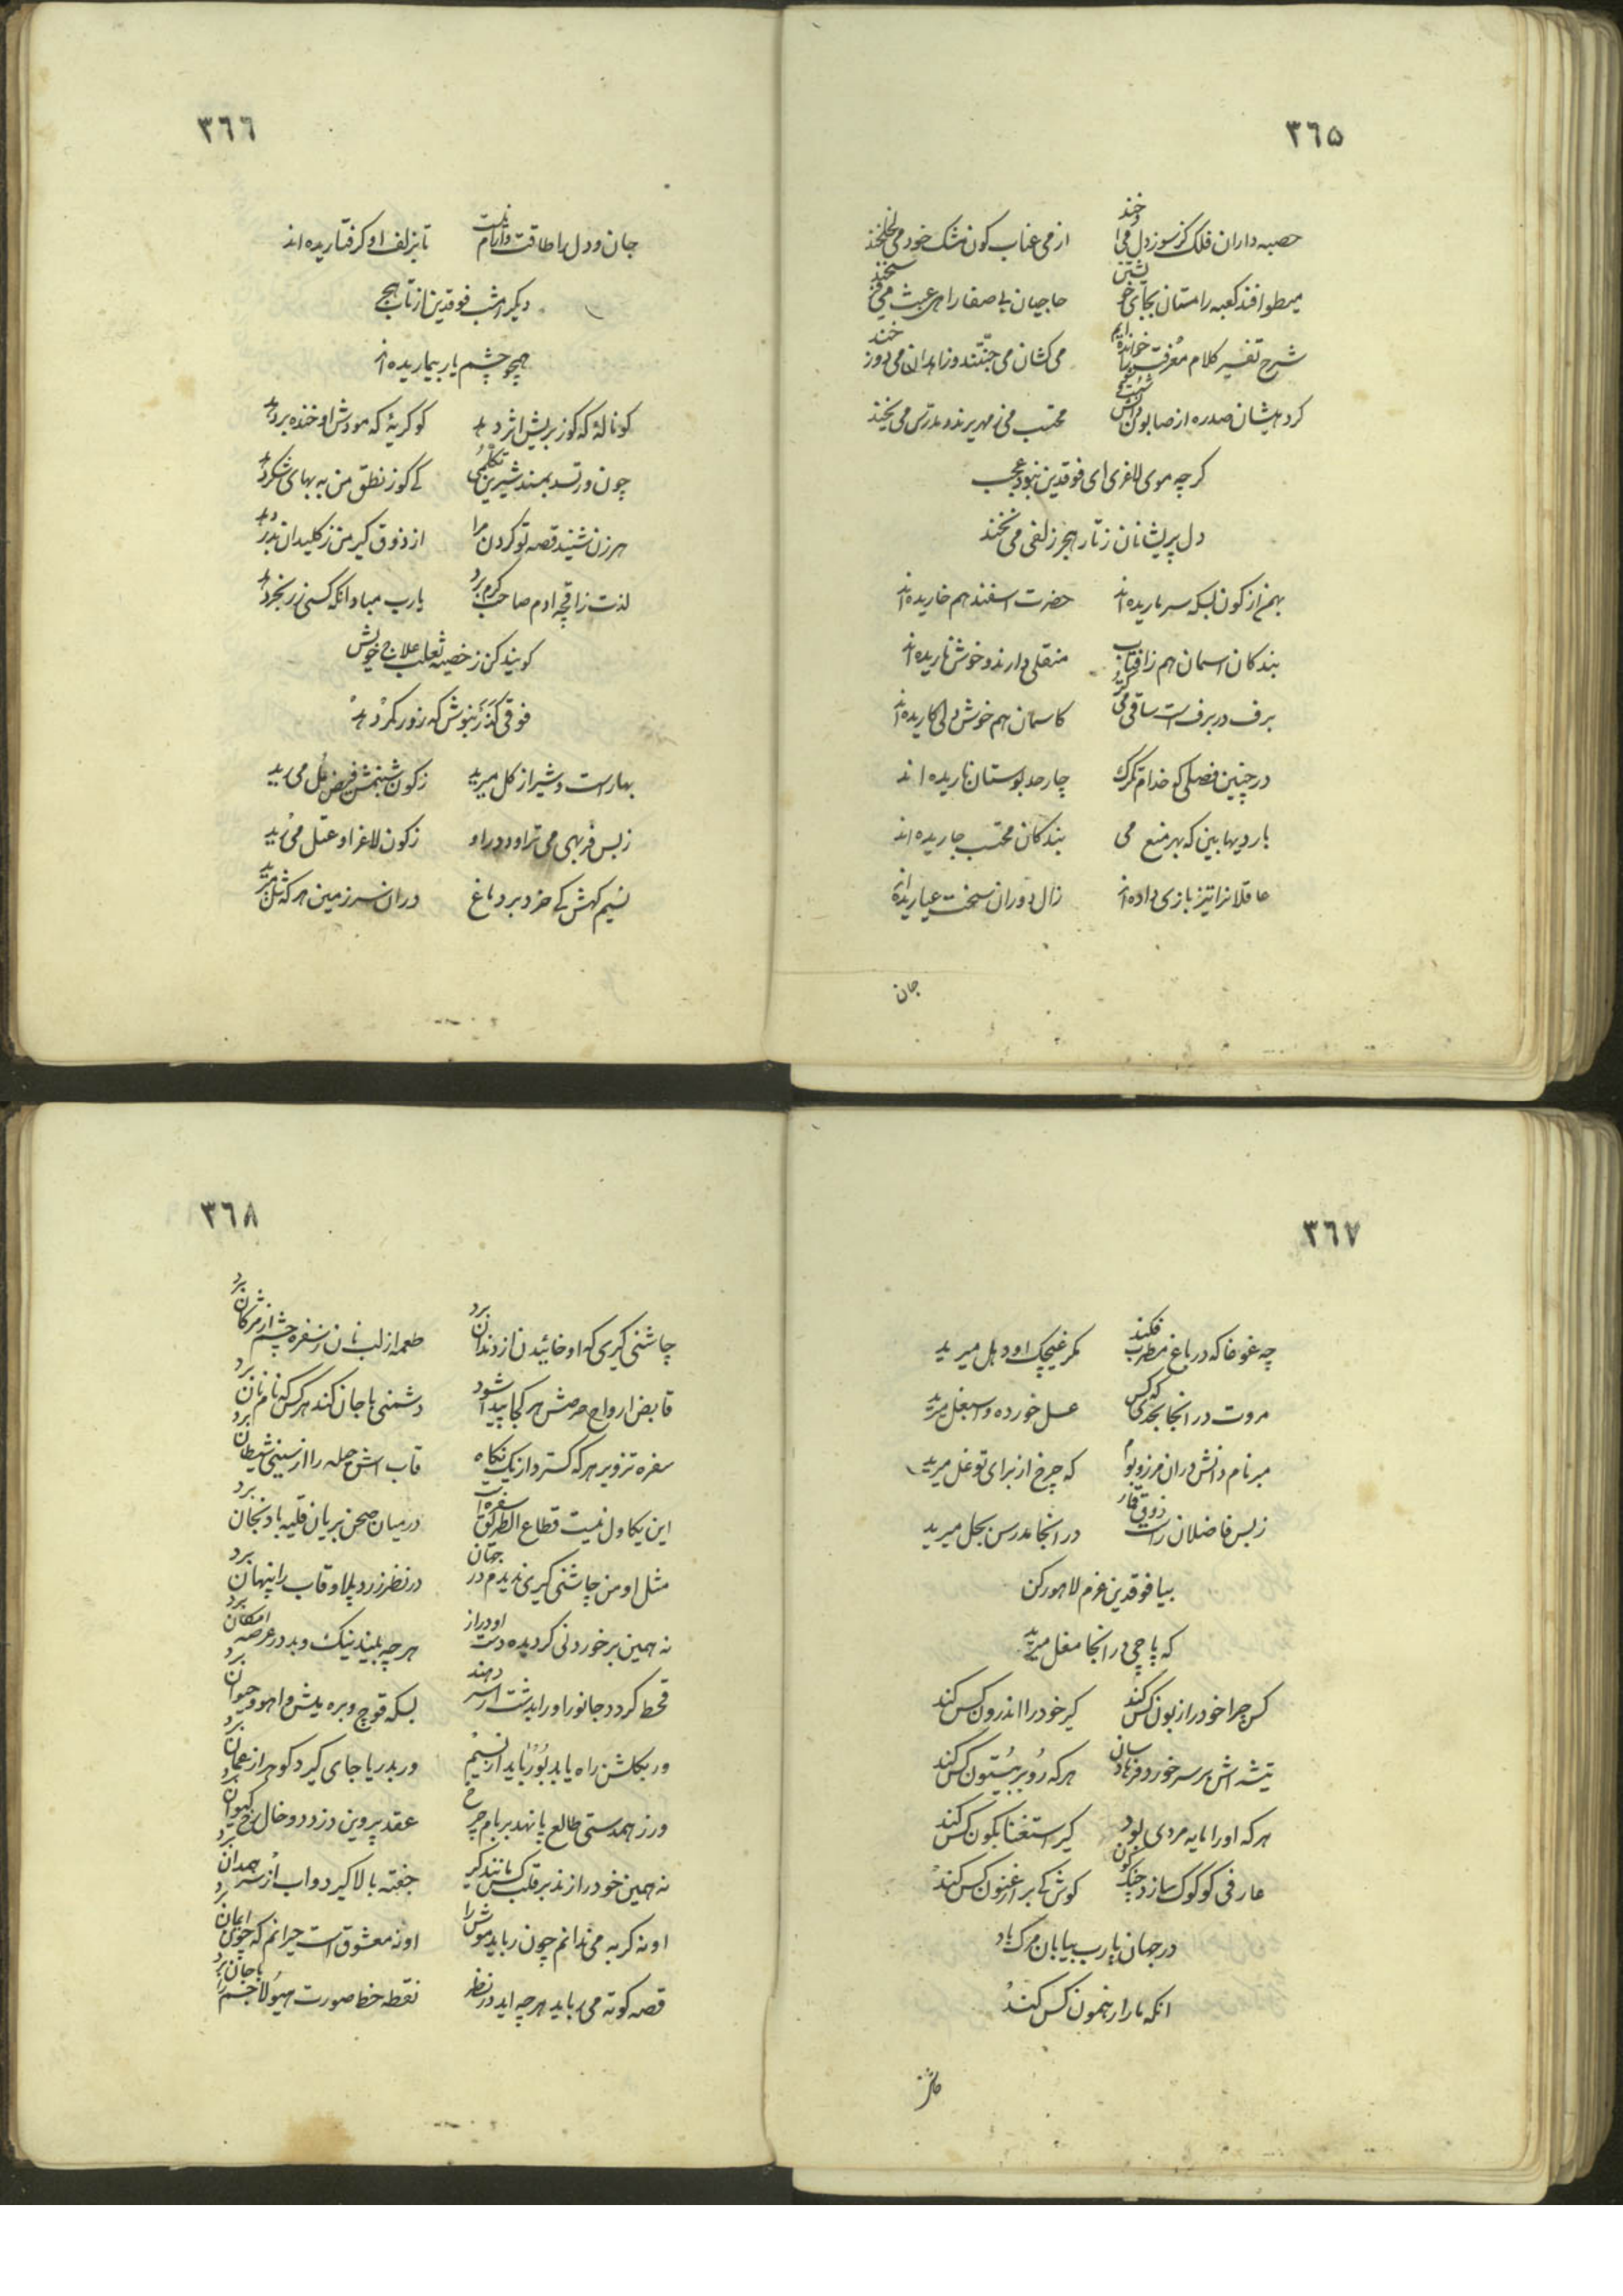 ٣٦٥
حصبه داران فلک کز سوز دل می خند
از می عناب کون مشک خود می
میطوافند کعبه را مستان بجای خویشتن
حاجیان بی صفا را هی عبث می
شرح تفسیر کلام معرفت را خوانده ایم
می کشان می جنتند و زاهدان می دوزخند
کرد ایشان صدره از صابون
محتسب می
کرچه موی لاغری ای فوقدین نبود عجب
دل پریشانان ز تار هجر زلفی می نخند
بهمن از کون بسکه سرما ریده اند
حضرت اسفند هم خا ریده اند
بندکان اسمان هم ز افتاب
منقلی دارند و خوش نا ریده اند
برف در برف است ساقی می
کاسمان هم خوش کا ریده اند
در چنین فصلی که خدام تکرک
چار حد بوستان نا ریده اند
باردیها بین که بهر منع می
بندکان محتسب جا ریده اند
عاقلانرا تیز بازی داده اند
زال دوران سخت عیا ریده اند
جان
٣٦٦
جان و دل را طاقت و ارام نیست
تا بزلف او کرفتا ریده اند
دیکر امشب فوقدین از تاب هیچ
همچو چشم یار بیما ریده اند
کو ناله که کوز بریش اثر دهد
کو کریه که مودش او خنده بر دهد
چون ورتسد بمند شیرین تکلمی
کی کوز نطق من به بهای شکر دهد
هر زن شنید قصه تو کردن مرا
از ذوق کیر من ز کلیدان بدر دهد
لذت ز اقچه ادم صاحب کرم برد
یارب مباد انکه کسی زر بخر دهد
کویند کن ز خصیه ثعلب علاج خویش
فوقی کذر بنوش که زور کمر دهد
بهار است و شیراز کل میرید
ز کون شبنمش فیض مل می رید
ز بس فربهی می تراود در او
ز کون لاغر او عتل می رید
نسیم کهش کی خرد بر دماغ
در ان سرزمین هر که شل میرید
٣٦٧
چه غوغا که در باغ مطرب فکند
مکر غیچک او دهل میرید
مروت در انجا بحدی که کس
عسل خورده و اسبغل میرید
مبر نام دانش در ان مرز و بوم
که چرخ از برای تو غل میرید
ز بس فاضلان راست ذوق قمار
در انجا مدرس بجل میرید
بیا فوقدین عزم لاهور کن
که پاچی در انجا مغل میرید
کس چرا خود را زبون کس کند
کیر خود را اندرون کس کند
تیشه اش بر سر خورد فرهاد سان
هر که رو بر بیستون کس کند
هر که او را مایه مردی بود
کیر استغنا بکون کس کند
عارفی کو کوک سازد چنک کون
کوش کی بر ارغنون کس کند
در جهان یارب بیابان مرک باد
انکه ما را رهنمون کس کند
٣٦٨
چاشنی کیری که او خائیدن از دندان برد
طعمه از لب نان ز سفره چشم از مژکان برد
قابض ارواح حرصش هر کجا پیدا شود
دشمنی با جان کند هر کس که نام نان برد
سفره تزویر هر که کسترد از یک نکاه
قاب اش حیله را از سینی شیطان برد
این یکاول نیست قطاع الطریق سفره است
در میان صحن بریان قلیه بادنجان برد
مثل او من چاشنی کیری ندیدم در جهان
در نظر زرد پلاو قاب را پنهان برد
نه همین بر خوردنی کردیده دست او دراز
هر چه بیند نیک و بد در عرصه امکان برد
قحط کردد جانور او را بدشت ار سر دهند
بسکه قوچ و بره و میش و اهو و حیوان برد
ور بکلشن راه یابد بو رباید از نسیم
ور بدریا جای کیرد کوهر از عمان برد
ورز همدستی طالع پا نهد بر بام چرخ
عقد پروین دزدد و خال رخ کیوان برد
نه همین خود را زند بر قلب کس مانند کیر
جفته بالا کیرد و اب از سر همدان برد
او نه کربه می ندانم چون رباید موش را
او نه معشوق است حیرانم که چون ایمان برد
قصه کوته می رباید هر چه اید در نظر
نقطه خط صورت هیولا جسم را با جان برد